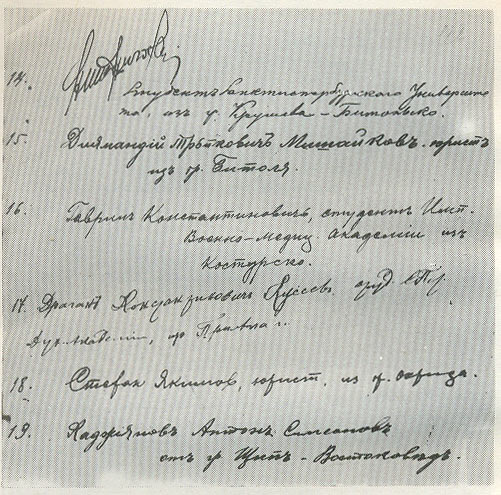 14.
студентъ Санктпетербургскаго Университе
та, изъ г. Крушева - Битольско.
15. Диямандій Трѣпковичъ Мишайковъ. юристъ
изъ гр. Битоля.
16. Гавриилъ Константиновичъ, студентъ Имп.
Военно-Медиц. Академіи изъ
Костурско.
17. Драганъ студ. С.П.
Дух. Академіи,
18. Стефан Якимов, юрист, из гр. Охрида.
19. Хаджияновъ Антонъ Симеоновъ
отъ гр. Щипъ - Востоковѣдъ.